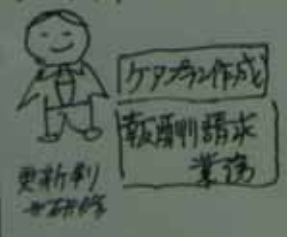 ケアプラン作成
報酬請求
業務
更新制